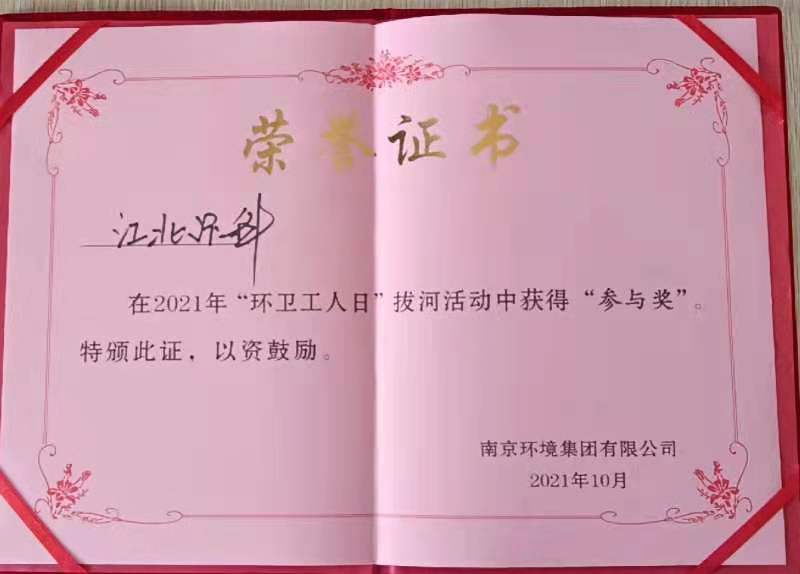 荣誉证书
江北环科
在2021年“环卫工人日”拔河活动中获得“参与奖”。
特颁此证，以资鼓励。
南京环境集团有限公司
2021年10月